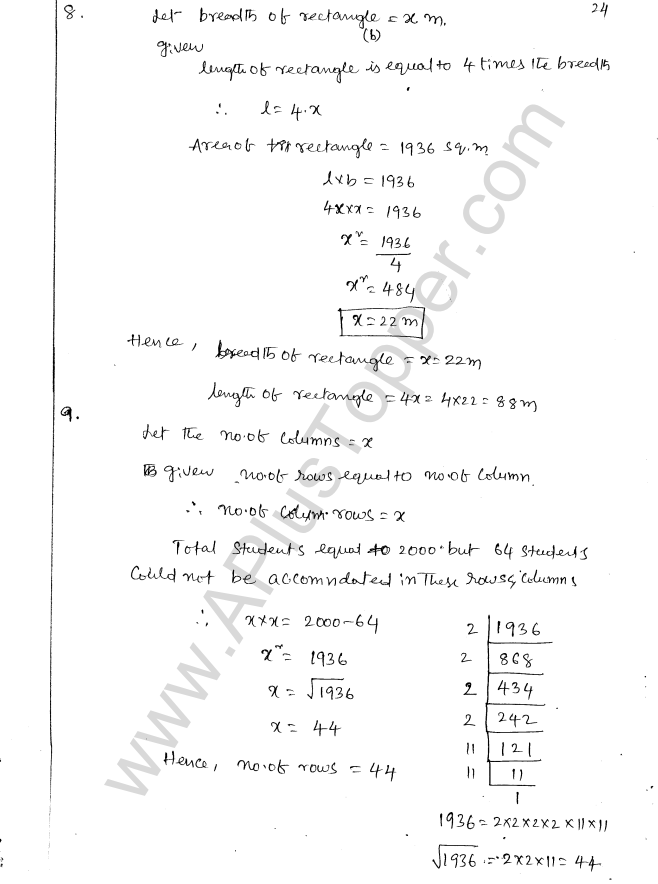 24
8. Let breadth of rectangle = x m.
(b)
given
length of rectangle is equal to 4 times the breadth
∴ l = 4·x
Area of rectangle = 1936 sq.m
l×b = 1936
4x×x = 1936
x² = 1936/4
x² = 484
x = 22 m
Hence, breadth of rectangle = x = 22m
length of rectangle = 4x = 4×22 = 88m
9.
Let the no.of columns = x
given no.of rows equal to no.of column.
∴ no.of rows = x
Total students equal to 2000 but 64 students
could not be accomndated in these rows & columns
∴ x×x = 2000-64
x² = 1936
x = √1936
x = 44
Hence, no.of rows = 44
2 | 1936
2 | 868
2 | 434
2 | 242
11 | 121
11 | 11
1
1936 = 2×2×2×2×11×11
√1936 = 2×2×11 = 44
www.APlusTopper.com